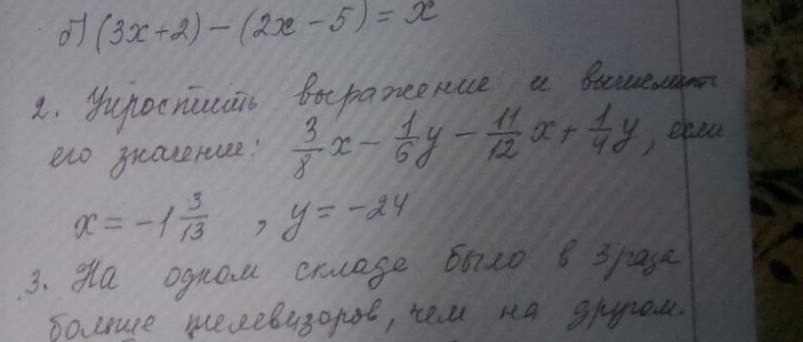 б) (3x+2) - (2x-5) = x
2. Упростить выражение и вычислить
его значение: 3/8 x - 1/6 y - 11/12 x + 1/4 y, если
x = -1 3/13 , y = -24
3. На одном складе было в 3 раза
больше телевизоров, чем на другом.